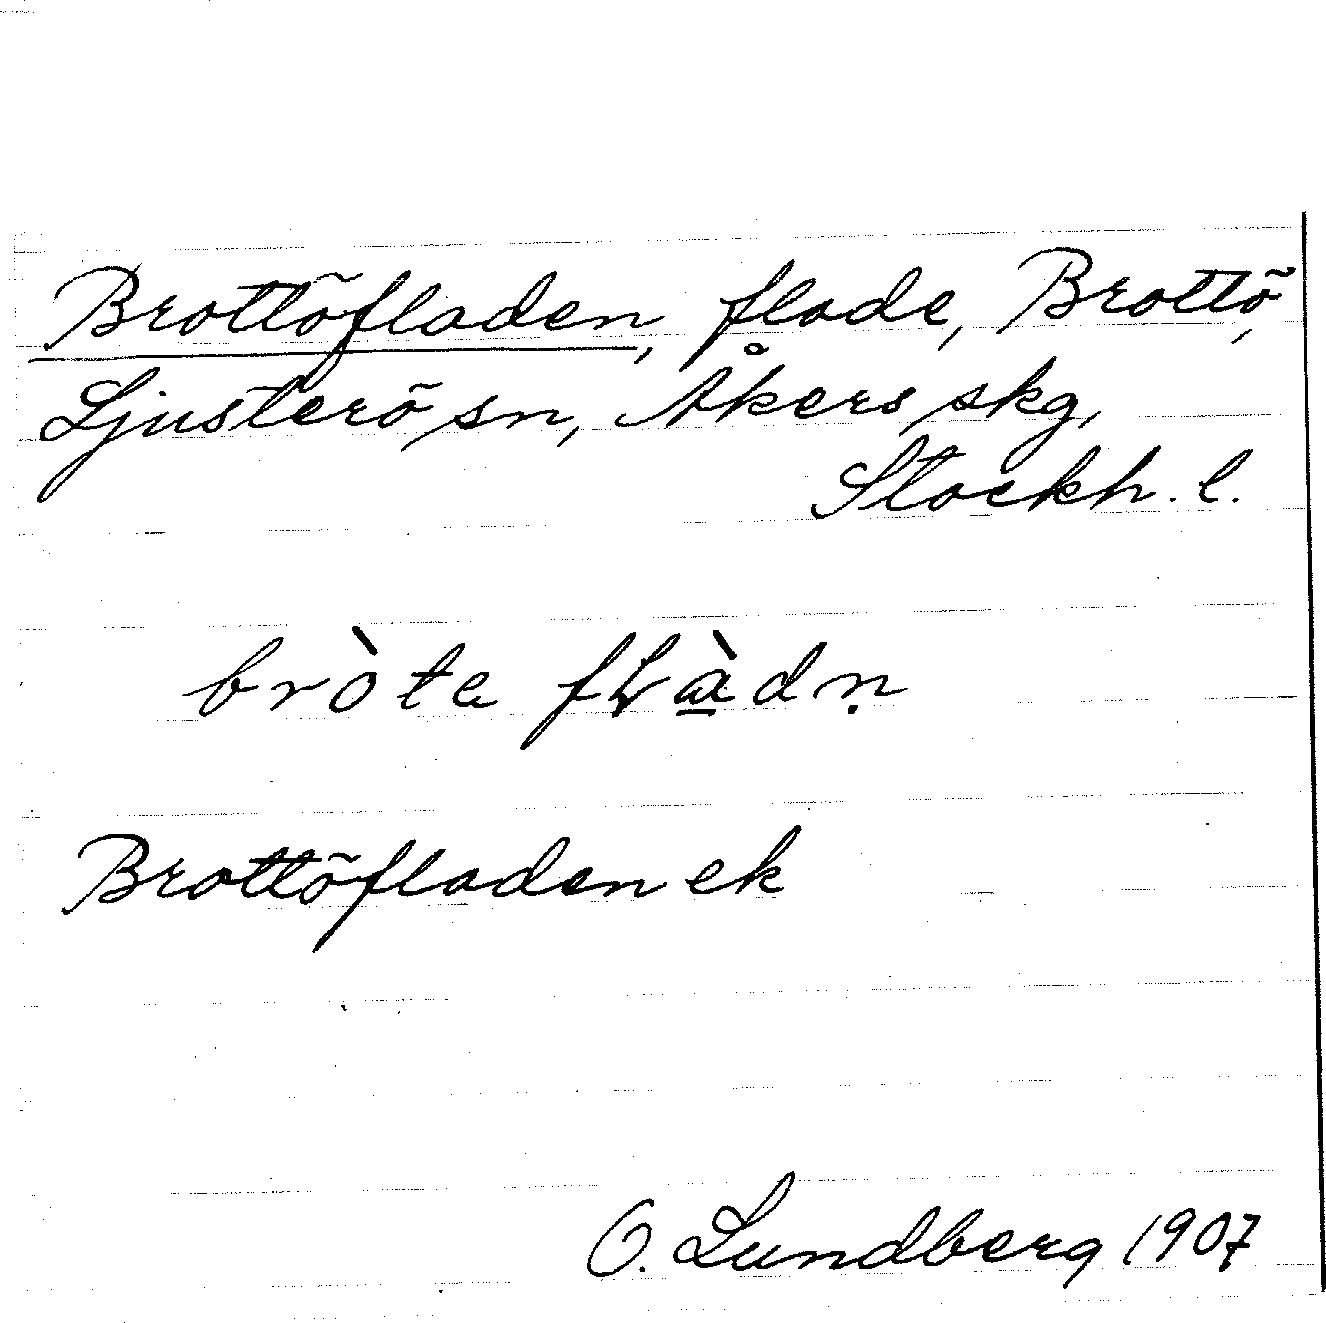 Brottöfladen, flade, Brottö,
Ljusterö sn, Åkers skg,
Stockh. l.
bròte fƚà̱dṇ
Brottöfladen ek
O. Lundberg 1907